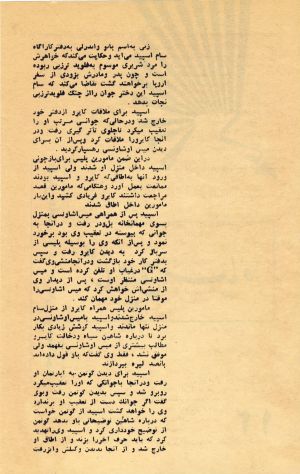 زنی به‌اسم بانو واندرلی به‌دفتر کارآگاه
سام اسپید می‌آید وحکایت می‌کند که خواهرش
را مرد شریری موسوم به‌فلوید ترزبی ربوده
است و چون پدر ومادرش بزودی از سفر
اروپا برخواهند گشت تقاضا می‌کند که سام
اسپید این دختر جوان رااز چنگ فلویدترزبی
نجات بدهد .
اسپید برای ملاقات کایرو ازدفتر خود
خارج شد ودرحالی‌که جوانی مرتب او را
تعقیب میکرد تاجلوی تآتر گیری رفت ودر
آنجا کایرورا ملاقات کرد وپس‌از آن برای
دیدن میس اوشاونسی رهسپار گردید .
دراین ضمن مامورین پلیس برای بازجوئی
اسپید داخل منزل او شدند ولی اسپید از
ورود آنها به‌اطاقی‌که کایرو و اسپید بودند
ممانعت بعمل آورد وهنگامی‌که مامورین قصد
مراجعت داشتند کایرو فریادی کشید واین‌بار
مامورین داخل اطاق شدند
اسپید پس از همراهی میس‌اوشانسی بمنزل
بسوی مهمانخانه بل‌ودر رفت و درآنجا به
جوانی که پیوسته در تعقیب وی بود برخورد
نمود و پس‌از آنکه وی را بوسیله پلیس از
سر باز کرد به دیدن کایرو رفت و سپس
بدفتر کار خود بازگشت ودرآنجامنشی‌وی‌گفت
که "G" درغیاب او تلفن کرده است و میس
اشاونسی منتظر اوست ، پس از دیدار وی
از منشی‌اش خواهش کرد که میس اوشانسی‌را
موقتا در منزل خود مهمان کند .
مامورین پلیس همراه کایرو از منزل‌سام
اسپید خارج‌شدندواسپید بامیس‌اوشانسی‌در
منزل تنها ماندند واسپید کوشش زیادی بکار
برد تا درباره شاهین سیاه ودخالت کایرو
مطالب بیشتری از میس اوشاونسی بفهمد ولی
موفق نشد ، فقط وی گفت‌که باو قول داده‌اند
پانصد لیره بپردازند
اسپید برای دیدن گوتمن به آپارتمان او
رفت ودرآنجا باجوانکی که اورا تعقیب‌میکرد
روبرو شد و سپس بدیدن گوتمن رفت وبوی
گفت اگر جوانک دست از تعقیب او برندارد
وی را خواهد کشت اسپید از گوتمن خواست
که درباره شاهین توضیحاتی باو بدهد گوتمن
از توضیح خودداری کرد و اسپید وی‌راتهدید
کرد که باید حرف آخررا بزند و از اطاق او
خارج شد و از آنجا بدیدن وکیلش واترفت